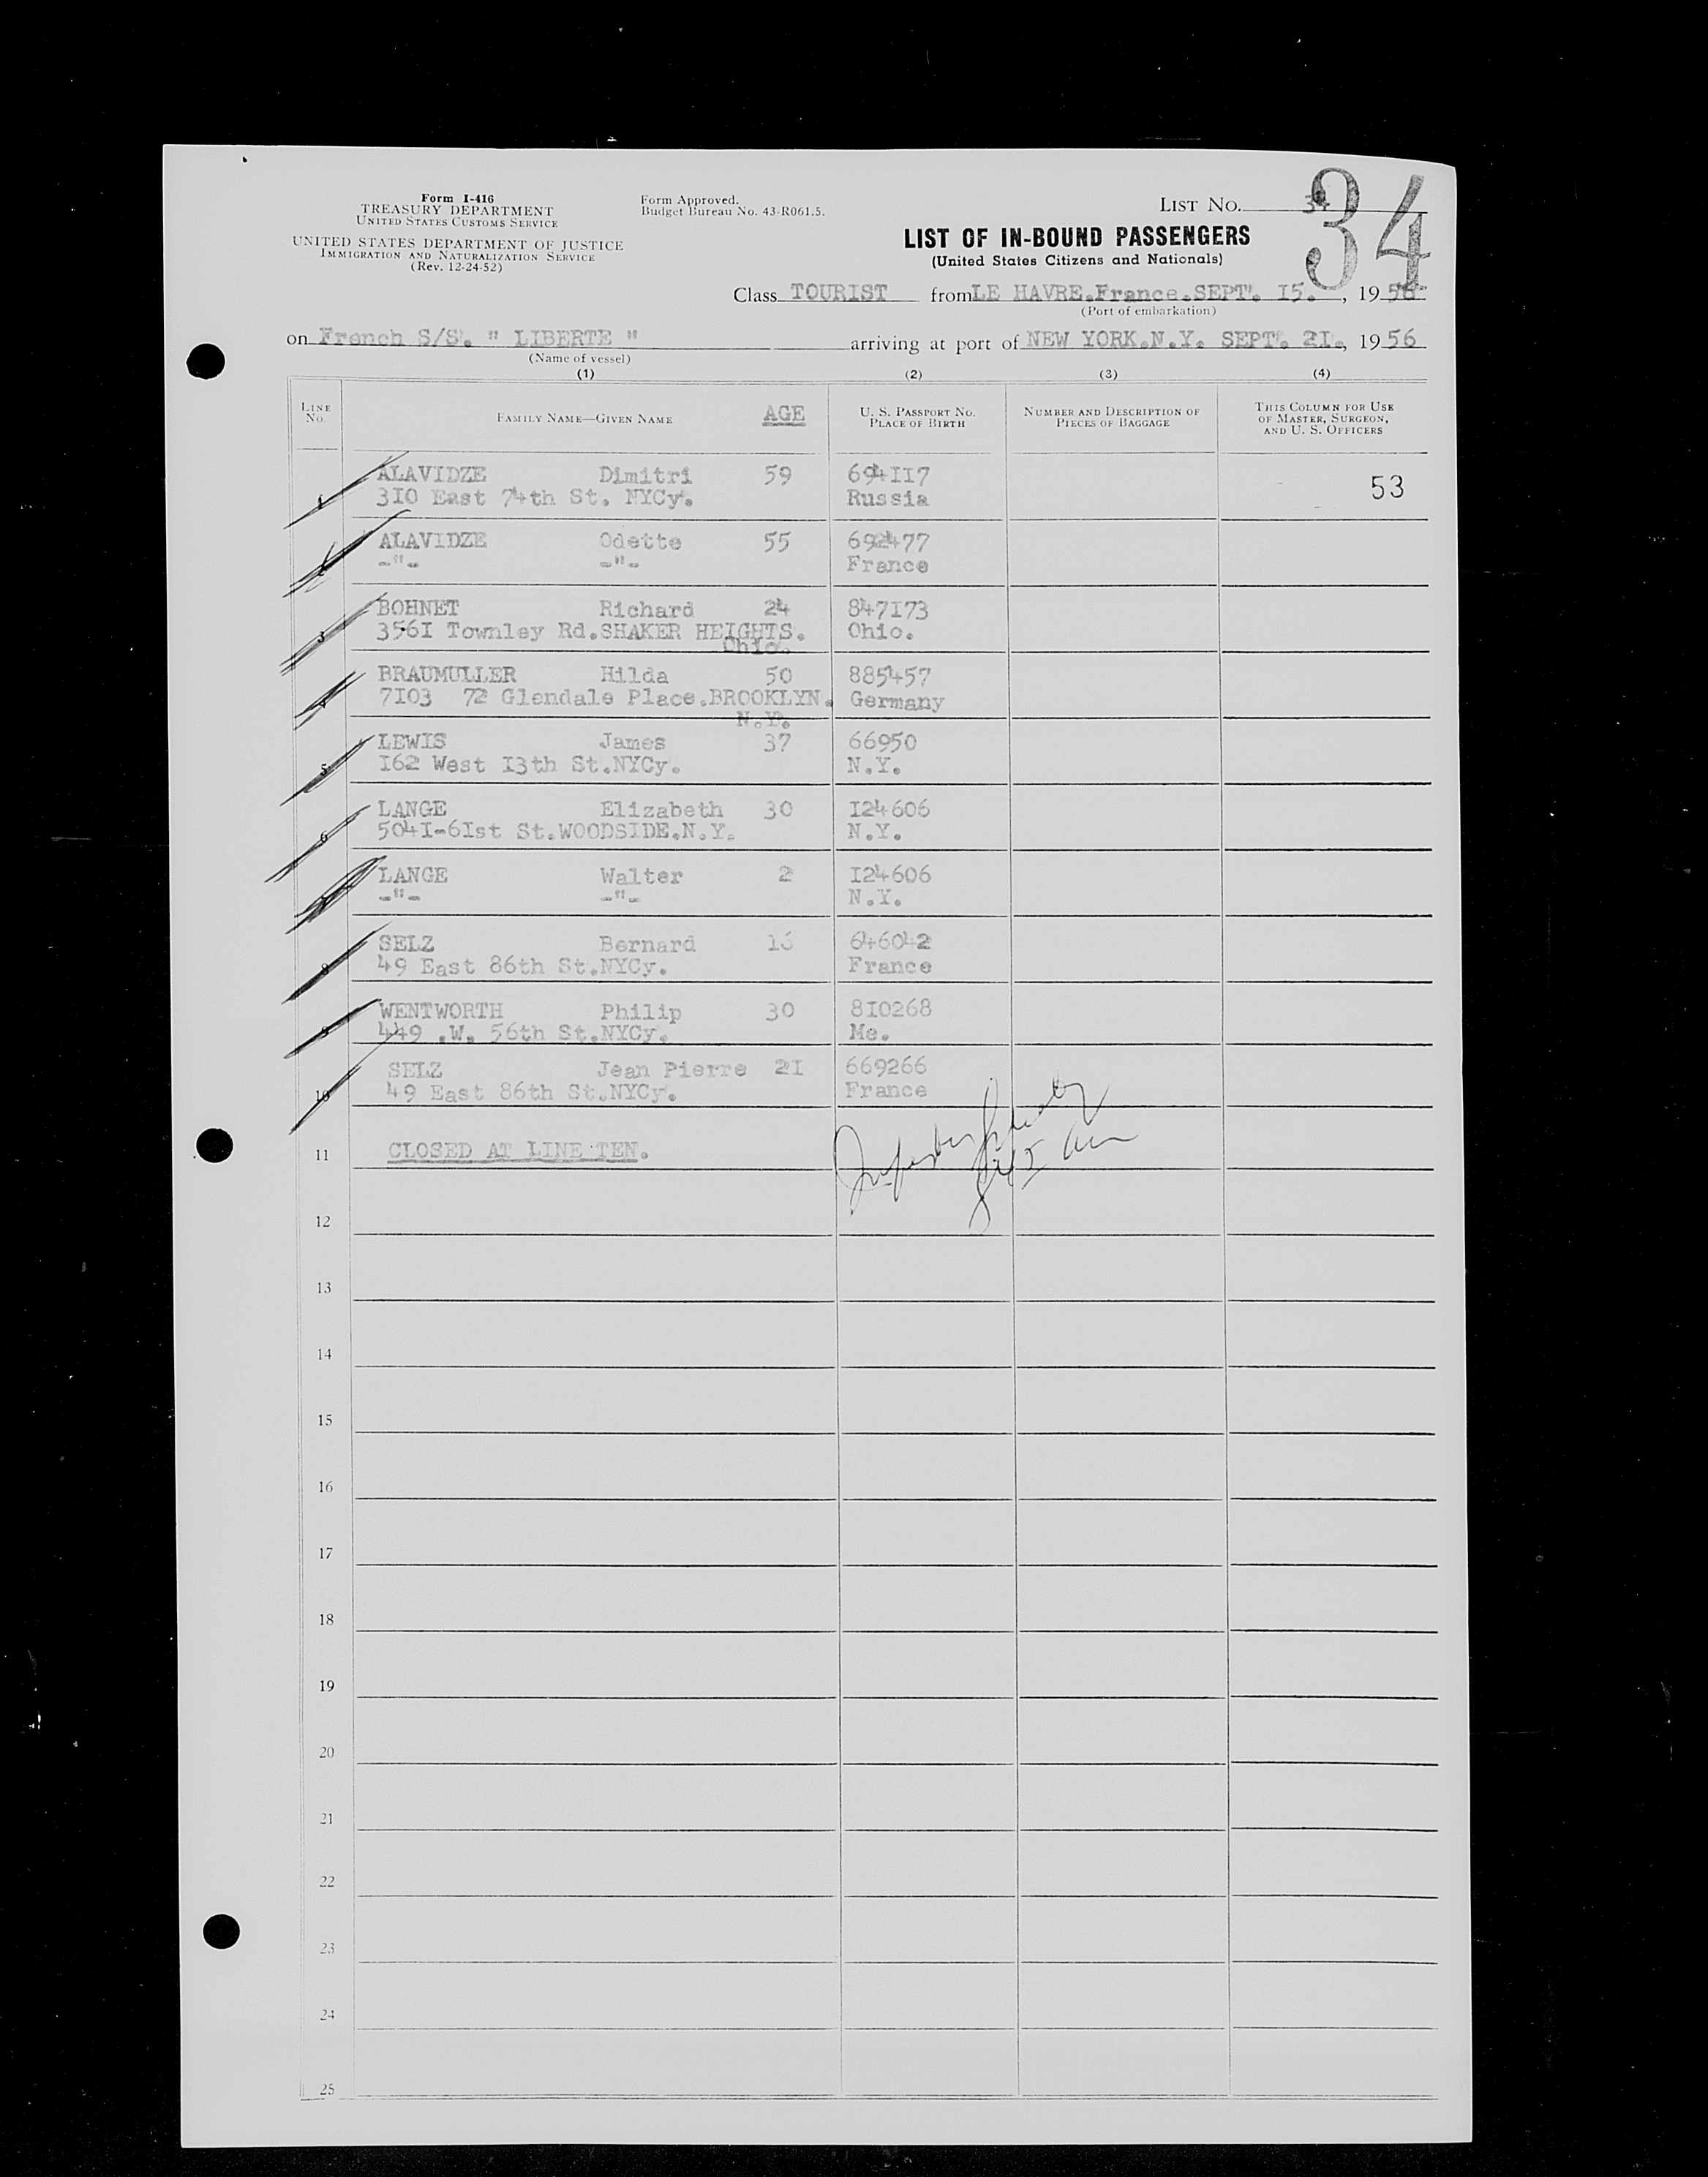 Form I-416
TREASURY DEPARTMENT
UNITED STATES CUSTOMS SERVICE
UNITED STATES DEPARTMENT OF JUSTICE
IMMIGRATION AND NATURALIZATION SERVICE
(Rev. 12-24-52)
Form Approved.
Budget Bureau No. 43-R061.5.
LIST No. 34
34
LIST OF IN-BOUND PASSENGERS
(United States Citizens and Nationals)
Class TOURIST from LE HAVRE.France.SEPT. I5. , 19 56
(Port of embarkation)
on French S/S. " LIBERTE " arriving at port of NEW YORK.N.Y. SEPT. 2I., 19 56
(Name of vessel)
(1) (2) (3) (4)
LINE No. FAMILY NAME—GIVEN NAME AGE U. S. PASSPORT NO. PLACE OF BIRTH NUMBER AND DESCRIPTION OF PIECES OF BAGGAGE THIS COLUMN FOR USE OF MASTER, SURGEON, AND U. S. OFFICERS
1 ALAVIDZE Dimitri 59 694II7 53
3I0 East 74th St. NYCy. Russia
2 ALAVIDZE Odette 55 692477
-"- -"- France
3 BOHNET Richard 24 847I73
356I Townley Rd.SHAKER HEIGHTS. Ohio.
Ohio.
4 BRAUMULLER Hilda 50 885457
7I03 72 Glendale Place.BROOKLYN. Germany
N.Y.
5 LEWIS James 37 66950
I62 West I3th St.NYCy. N.Y.
6 LANGE Elizabeth 30 I24606
504I-6Ist St.WOODSIDE.N.Y. N.Y.
7 LANGE Walter 2 I24606
-"- -"- N.Y.
8 SELZ Bernard 646042
49 East 86th St.NYCy. France
9 WENTWORTH Philip 30 8I0268
449 .W. 56th St.NYCy. Me.
10 SELZ Jean Pierre 2I 669266
49 East 86th St.NYCy. France
11 CLOSED AT LINE TEN.
12
13
14
15
16
17
18
19
20
21
22
23
24
25